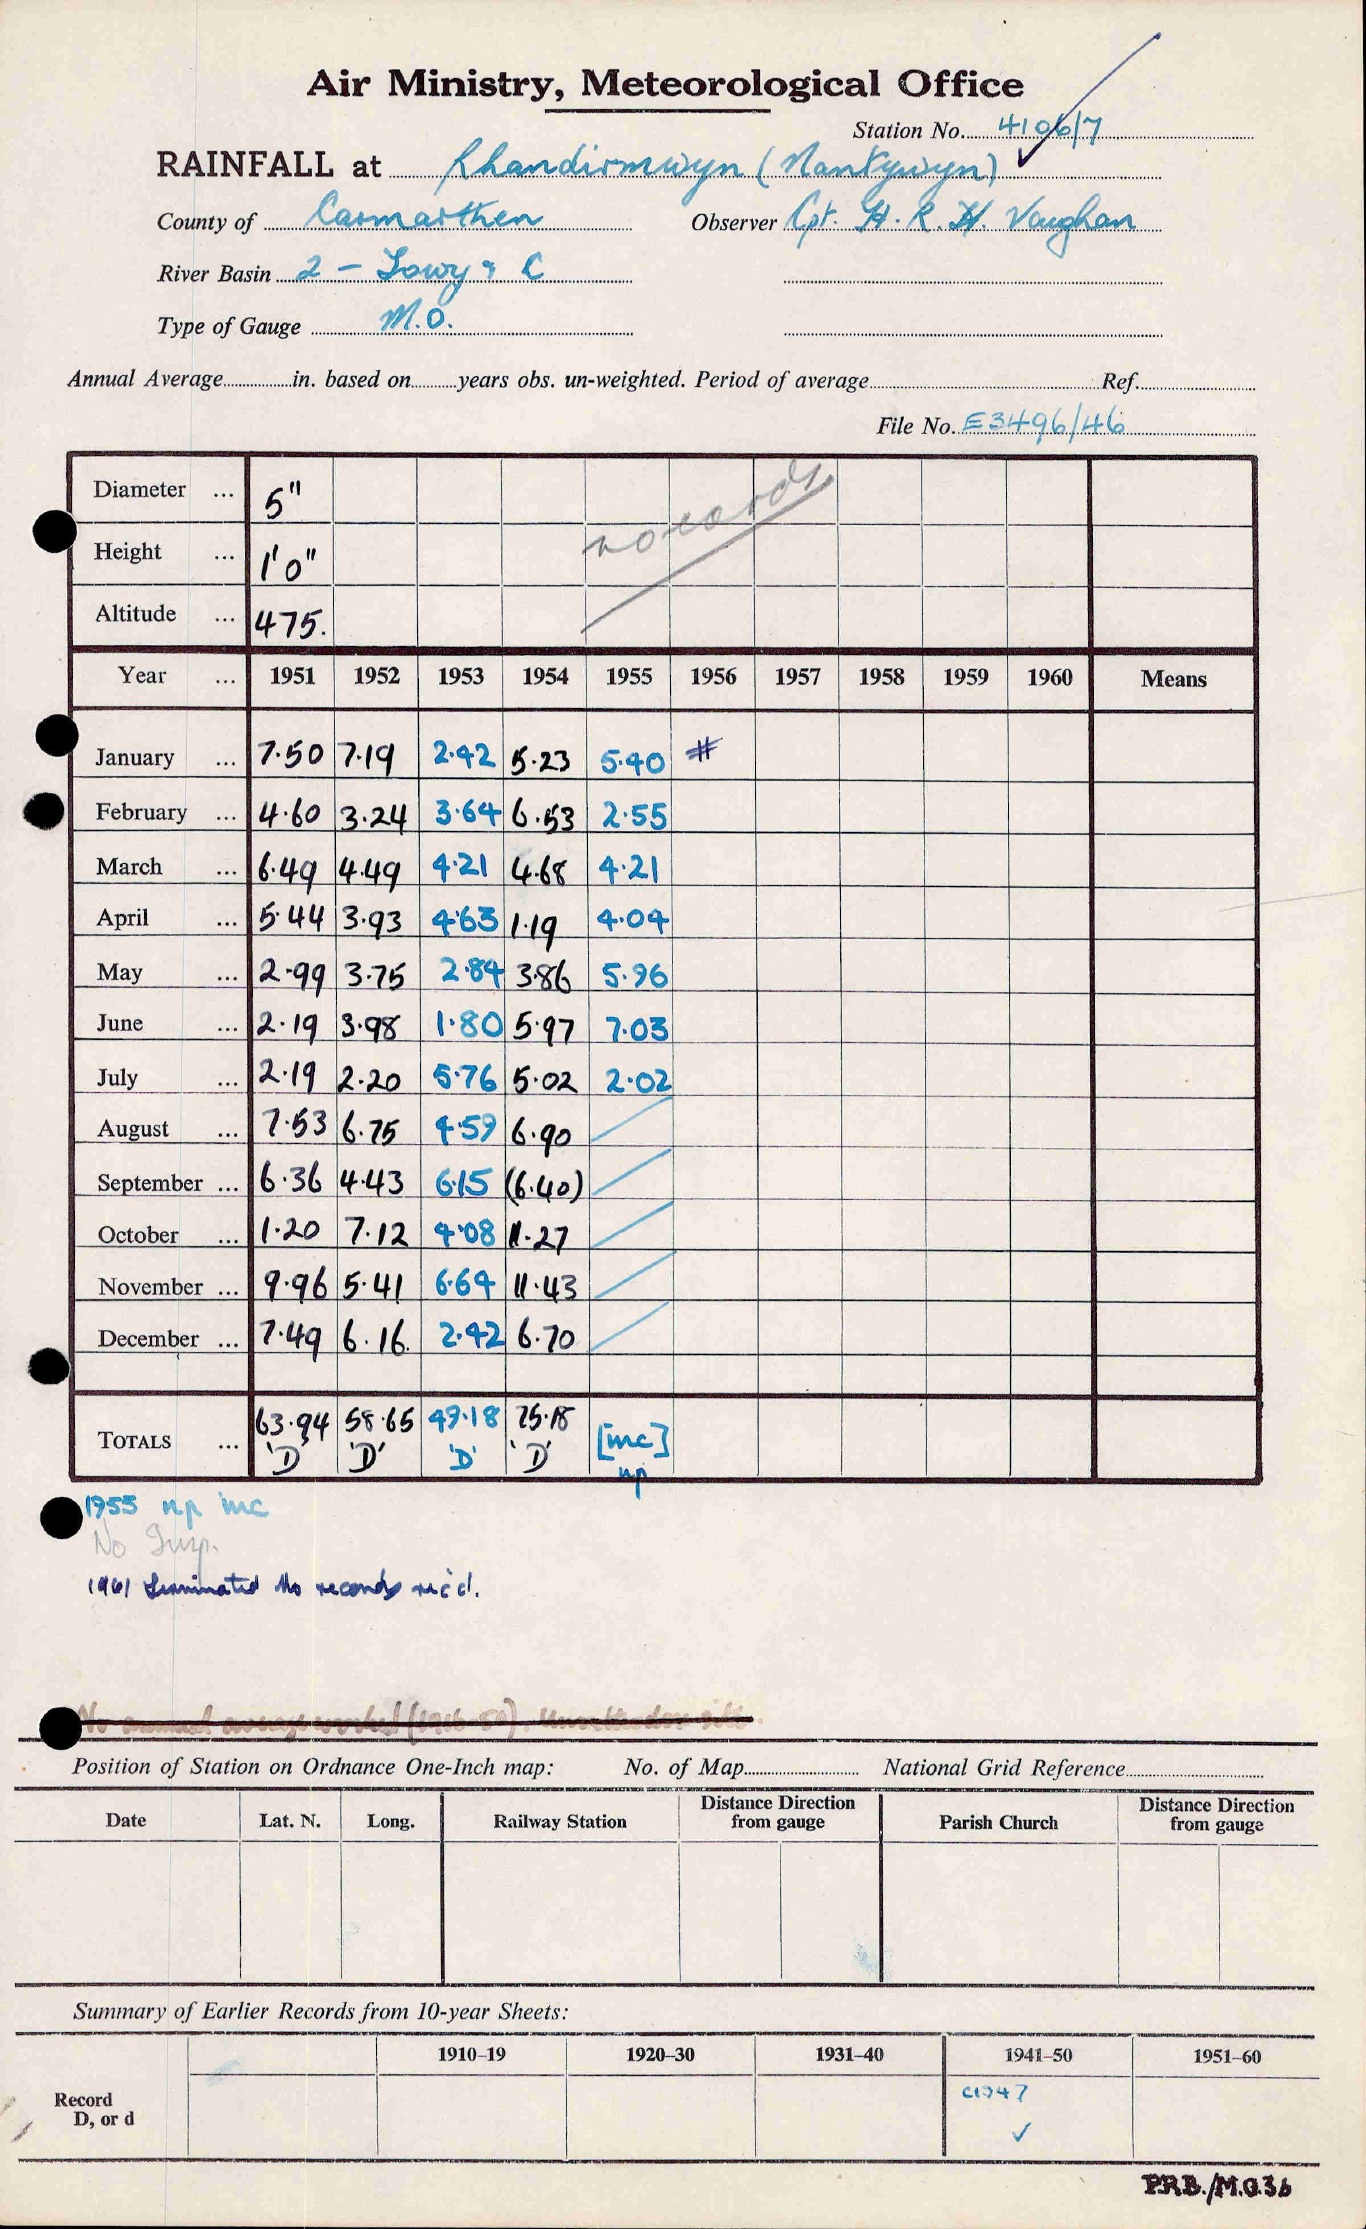 Air Ministry, Meteorological Office
Station No. 4106/7
RAINFALL at Rhandirmwyn (Nantywyn)
County of Carmarthen Observer Cpt. H. R. H. Vaughan
River Basin 2 - Towy & C
Type of Gauge M.O.
Annual Average in. based on years obs. un-weighted. Period of average Ref.
File No. E3496/46
Diameter ... 5"
no cards
Height ... 1'0"
Altitude ... 475.
Year ... 1951 1952 1953 1954 1955 1956 1957 1958 1959 1960 Means
January ... 7.50 7.19 2.42 5.23 5.40 #
February ... 4.60 3.24 3.64 6.53 2.55
March ... 6.49 4.49 4.21 4.68 4.21
April ... 5.44 3.93 4.63 1.19 4.04
May ... 2.99 3.75 2.84 3.86 5.96
June ... 2.19 3.98 1.80 5.97 7.03
July ... 2.19 2.20 5.76 5.02 2.02
August ... 7.53 6.75 4.59 6.90
September ... 6.36 4.43 6.15 (6.40)
October ... 1.20 7.12 4.08 11.27
November ... 9.96 5.41 6.64 11.43
December ... 7.49 6.16 2.42 6.70
TOTALS ... 63.94 58.65 49.18 75.18 [inc]
'D' 'D' 'D' 'D' np
1955 np inc
No Insp.
1961 Terminated No records rec'd.
No annual average worked (1916-50). site.
Position of Station on Ordnance One-Inch map: No. of Map National Grid Reference
Date Lat. N. Long. Railway Station Distance Direction from gauge Parish Church Distance Direction from gauge
Summary of Earlier Records from 10-year Sheets:
1910-19 1920-30 1931-40 1941-50 1951-60
Record D, or d
C1947
✓
P.R.B./M.O.36